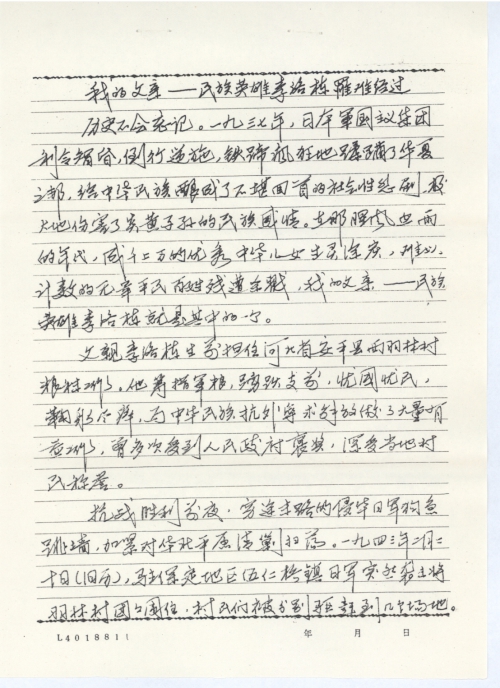 我的父亲——民族英雄李洛栋罹难经过
历史不会忘记。一九三七年，日本军国主义集团
利令智昏，倒行逆施，铁蹄疯狂地踩躏了华夏
之邦，给中华民族酿成了不堪回首的社会性悲剧，极
大地伤害了炎黄子孙的民族感情。在那腥风血雨
的年代，成千上万的优秀中华儿女生灵涂炭，难以
计数的无辜平民百姓残遭杀戮，我的父亲——民族
英雄李洛栋就是其中的一个。
父亲李洛栋生前担任河北省安平县南羽林村
粮秣工作。他筹措军粮，踊跃支前，忧国忧民，
鞠躬尽瘁，为中华民族抗外寇求解放做了大量有
益工作，曾多次受到人民政府褒奖，深受当地村
民称赞。
抗战胜利前夜，穷途末路的侵华日军狗急
跳墙，加紧对华北平原清剿扫荡。一九四三年二月二
十日(旧历)，驻保定地区伍仁桥镇日军突然袭击将
羽林村团团围住，村民们被分别驱赶到几个场地。
L401881(
年 月 日